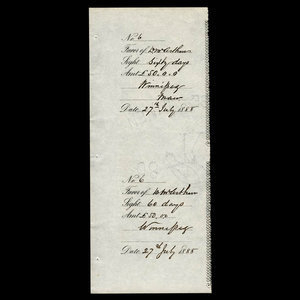 No. 6
Favor of D McArthur
Sight Sixty days
Amt £50.0.0
Winnipeg
Man
Date 27th July 1888
No. 6
Favor of D McArthur
Sight 60 days
Amt £50.
Winnipeg
Date 27th July 1888